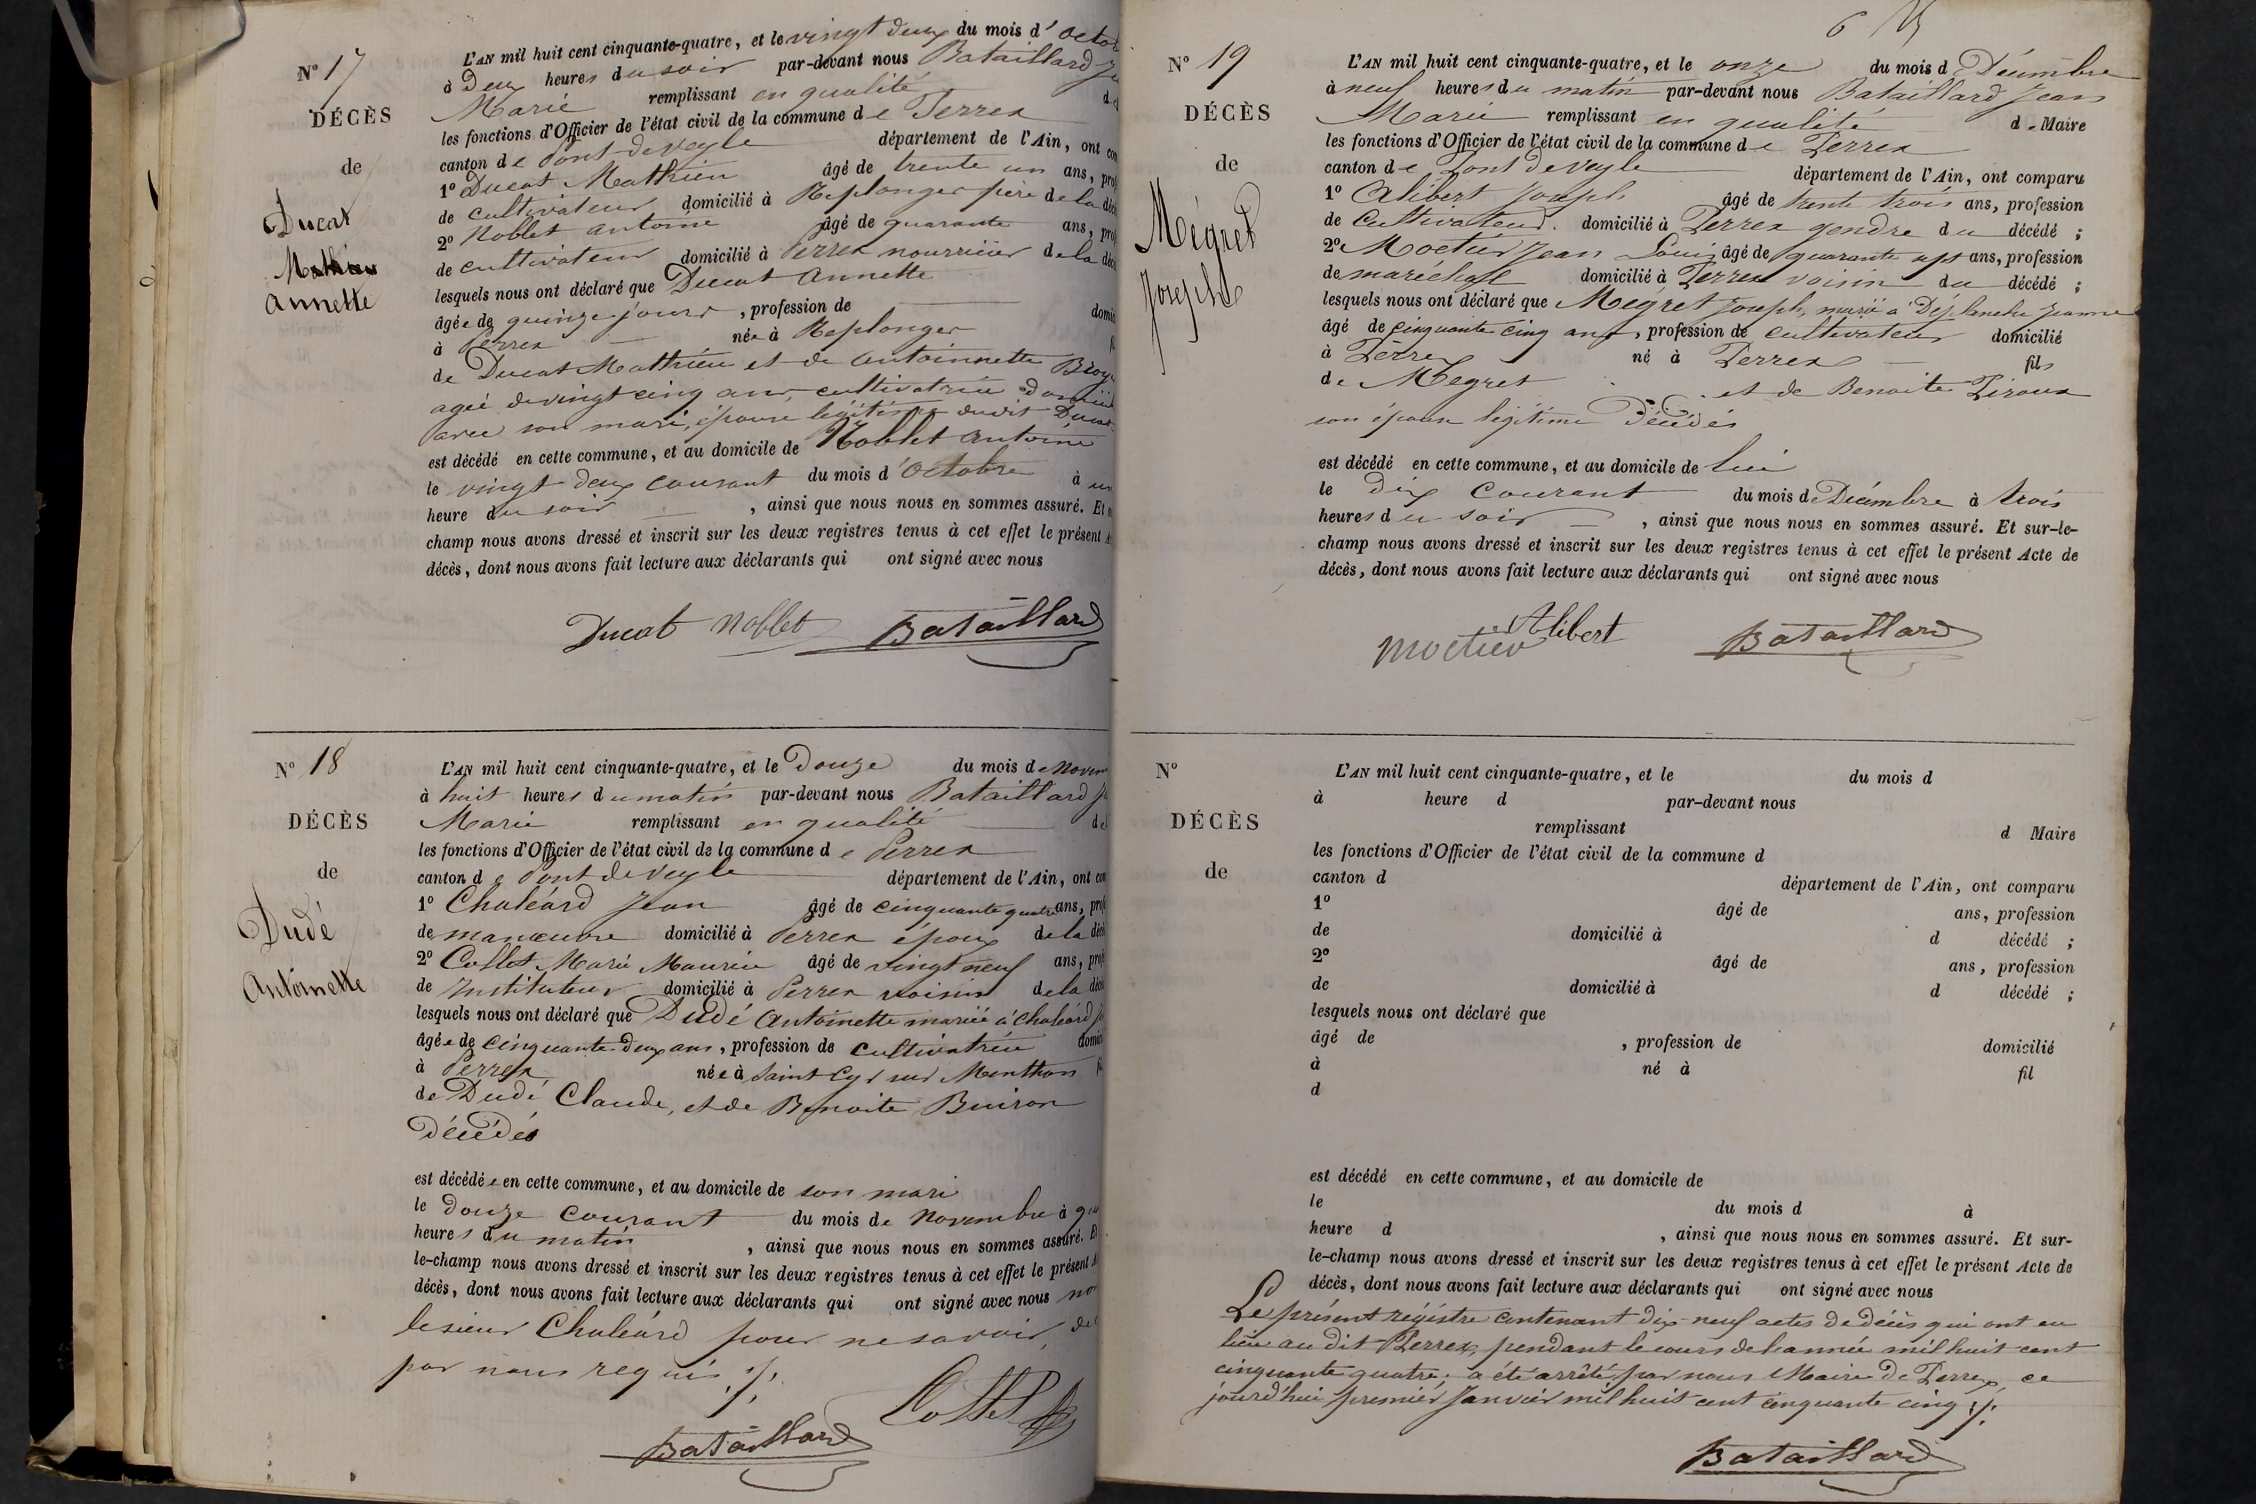 N° 17
DÉCÈS
de
Ducat
Mathieu
Annette
L'AN mil huit cent cinquante-quatre, et le vingt deux du mois d'octob
à Deux heures du soir par-devant nous Bataillard
Marie remplissant en qualité
les fonctions d'Officier de l'état civil de la commune de Perrex
canton de Pont de veyle département de l'Ain, ont com
1° Ducat Mathieu âgé de trente un ans, prof
de cultivateur domicilié à Replonges père de la déc
2° Noblet antoine âgé de quarante ans, prof
de cultivateur domicilié à Perrex nourricier de la déc
lesquels nous ont déclaré que Ducat Annette
âgée de quinze jours, profession de domic
à Perrex née à Replonges
de Ducat Mathieu et de Antoinnette Broy
agée de vingt cinq ans, cultivatrice domicil
avec son mari, épouse légitime dudit Ducat
est décédé en cette commune, et au domicile de Noblet Antoine
le vingt deux courant du mois d'Octobre à un
heure du soir, ainsi que nous nous en sommes assuré. Et
champ nous avons dressé et inscrit sur les deux registres tenus à cet effet le présent
décès, dont nous avons fait lecture aux déclarants qui ont signé avec nous
Ducat Noblet Bataillard
N° 18
DÉCÈS
de
Dudé
Antoinette
L'AN mil huit cent cinquante-quatre, et le Douze du mois de Novem
à huit heures du matin par-devant nous Bataillard
Marie remplissant en qualité de
les fonctions d'Officier de l'état civil de la commune de Perrex
canton de Pont de veyle département de l'Ain, ont com
1° Chaléard Jean âgé de cinquante quatre ans, prof
de manœuvre domicilié à Perrex époux de la déc
2° Collet Marie Maurice âgé de vingt neuf ans, prof
de Instituteur domicilié à Perrex voisin de la déc
lesquels nous ont déclaré que Dudé Antoinette mariée à Chaléard
âgée de cinquante deux ans, profession de cultivatrice domici
à Perrex née à Saint Cyr sur Menthon
de Dudé Claude, et de Benoite Buiron
Décédés
est décédée en cette commune, et au domicile de son mari
le douze courant du mois de novembre à
heures du matin, ainsi que nous nous en sommes assuré. E
le-champ nous avons dressé et inscrit sur les deux registres tenus à cet effet le présent
décès, dont nous avons fait lecture aux déclarants qui ont signé avec nous non
le sieur Chaléard pour ne savoir, de
par nous requis ./.
Bataillard Collet
N° 19
DÉCÈS
de
Mégret
Joseph
L'AN mil huit cent cinquante-quatre, et le onze du mois de Décembre
à neuf heures du matin par-devant nous Bataillard Jean
Marie remplissant en qualité de Maire
les fonctions d'Officier de l'état civil de la commune de Perrex
canton de Pont de veyle département de l'Ain, ont comparu
1° Alibert Joseph âgé de trente trois ans, profession
de Cultivateur domicilié à Perrex gendre du décédé ;
2° Moctier Jean Louis âgé de quarante sept ans, profession
de maréchal domicilié à Perrex voisin du décédé ;
lesquels nous ont déclaré que Mégret Joseph, marié à Déplanche Jeanne
âgé de cinquante cinq ans, profession de cultivateur domicilié
à Perrex né à Perrex fils
de Mégret et de Benoite Piroux
son épouse légitime Décédés
est décédé en cette commune, et au domicile de lui
le dix courant du mois de Décembre à trois
heures du soir, ainsi que nous nous en sommes assuré. Et sur-le-
champ nous avons dressé et inscrit sur les deux registres tenus à cet effet le présent Acte de
décès, dont nous avons fait lecture aux déclarants qui ont signé avec nous
Alibert
Moctier Bataillard
N°
DÉCÈS
de
L'AN mil huit cent cinquante-quatre, et le du mois d
à heure d par-devant nous
remplissant d Maire
les fonctions d'Officier de l'état civil de la commune d
canton d département de l'Ain, ont comparu
1° âgé de ans, profession
de domicilié à d décédé ;
2° âgé de ans, profession
de domicilié à d décédé ;
lesquels nous ont déclaré que
âgé de , profession de domicilié
à né à fil
d
est décédé en cette commune, et au domicile de
le du mois d à
heure d , ainsi que nous nous en sommes assuré. Et sur-
le-champ nous avons dressé et inscrit sur les deux registres tenus à cet effet le présent Acte de
décès, dont nous avons fait lecture aux déclarants qui ont signé avec nous
Le présent régistre contenant dix-neuf actes de décès qui ont eu
lieu au dit Perrex, pendant le cours de l'année mil huit cent
cinquante quatre; a été arrêté par nous Maire de Perrex, ce
jourd'hui premier Janvier mil huit cent cinquante cinq ./.
Bataillard